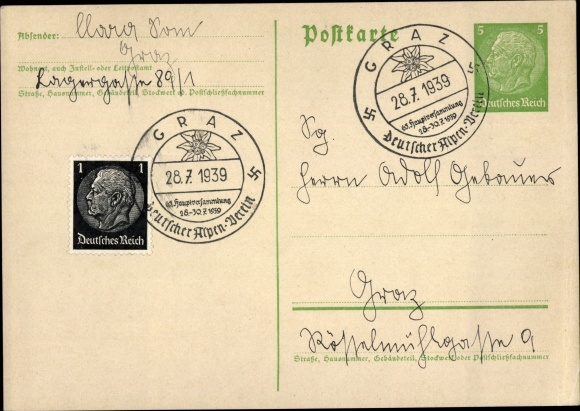 Absender: Clara Som
Graz
Wohnort, auch Zustell- oder Leitpostamt
Lagergasse 89/1
Straße, Hausnummer, Gebäudeteil, Stockwerk od. Postschließfachnummer
1 1
Deutsches Reich
GRAZ
28.7.1939
65. Hauptversammlung
28.-30.7.1939
Deutscher Alpen-Verein
Postkarte
GRAZ
28.7.1939
65. Hauptversammlung
28.-30.7.1939
Deutscher Alpen-Verein
5 5
Deutsches Reich
Sg.
Herrn Adolf Gebauer
Graz
Rösselmühlgasse 9
Straße, Hausnummer, Gebäudeteil, Stockwerk oder Postschließfachnummer